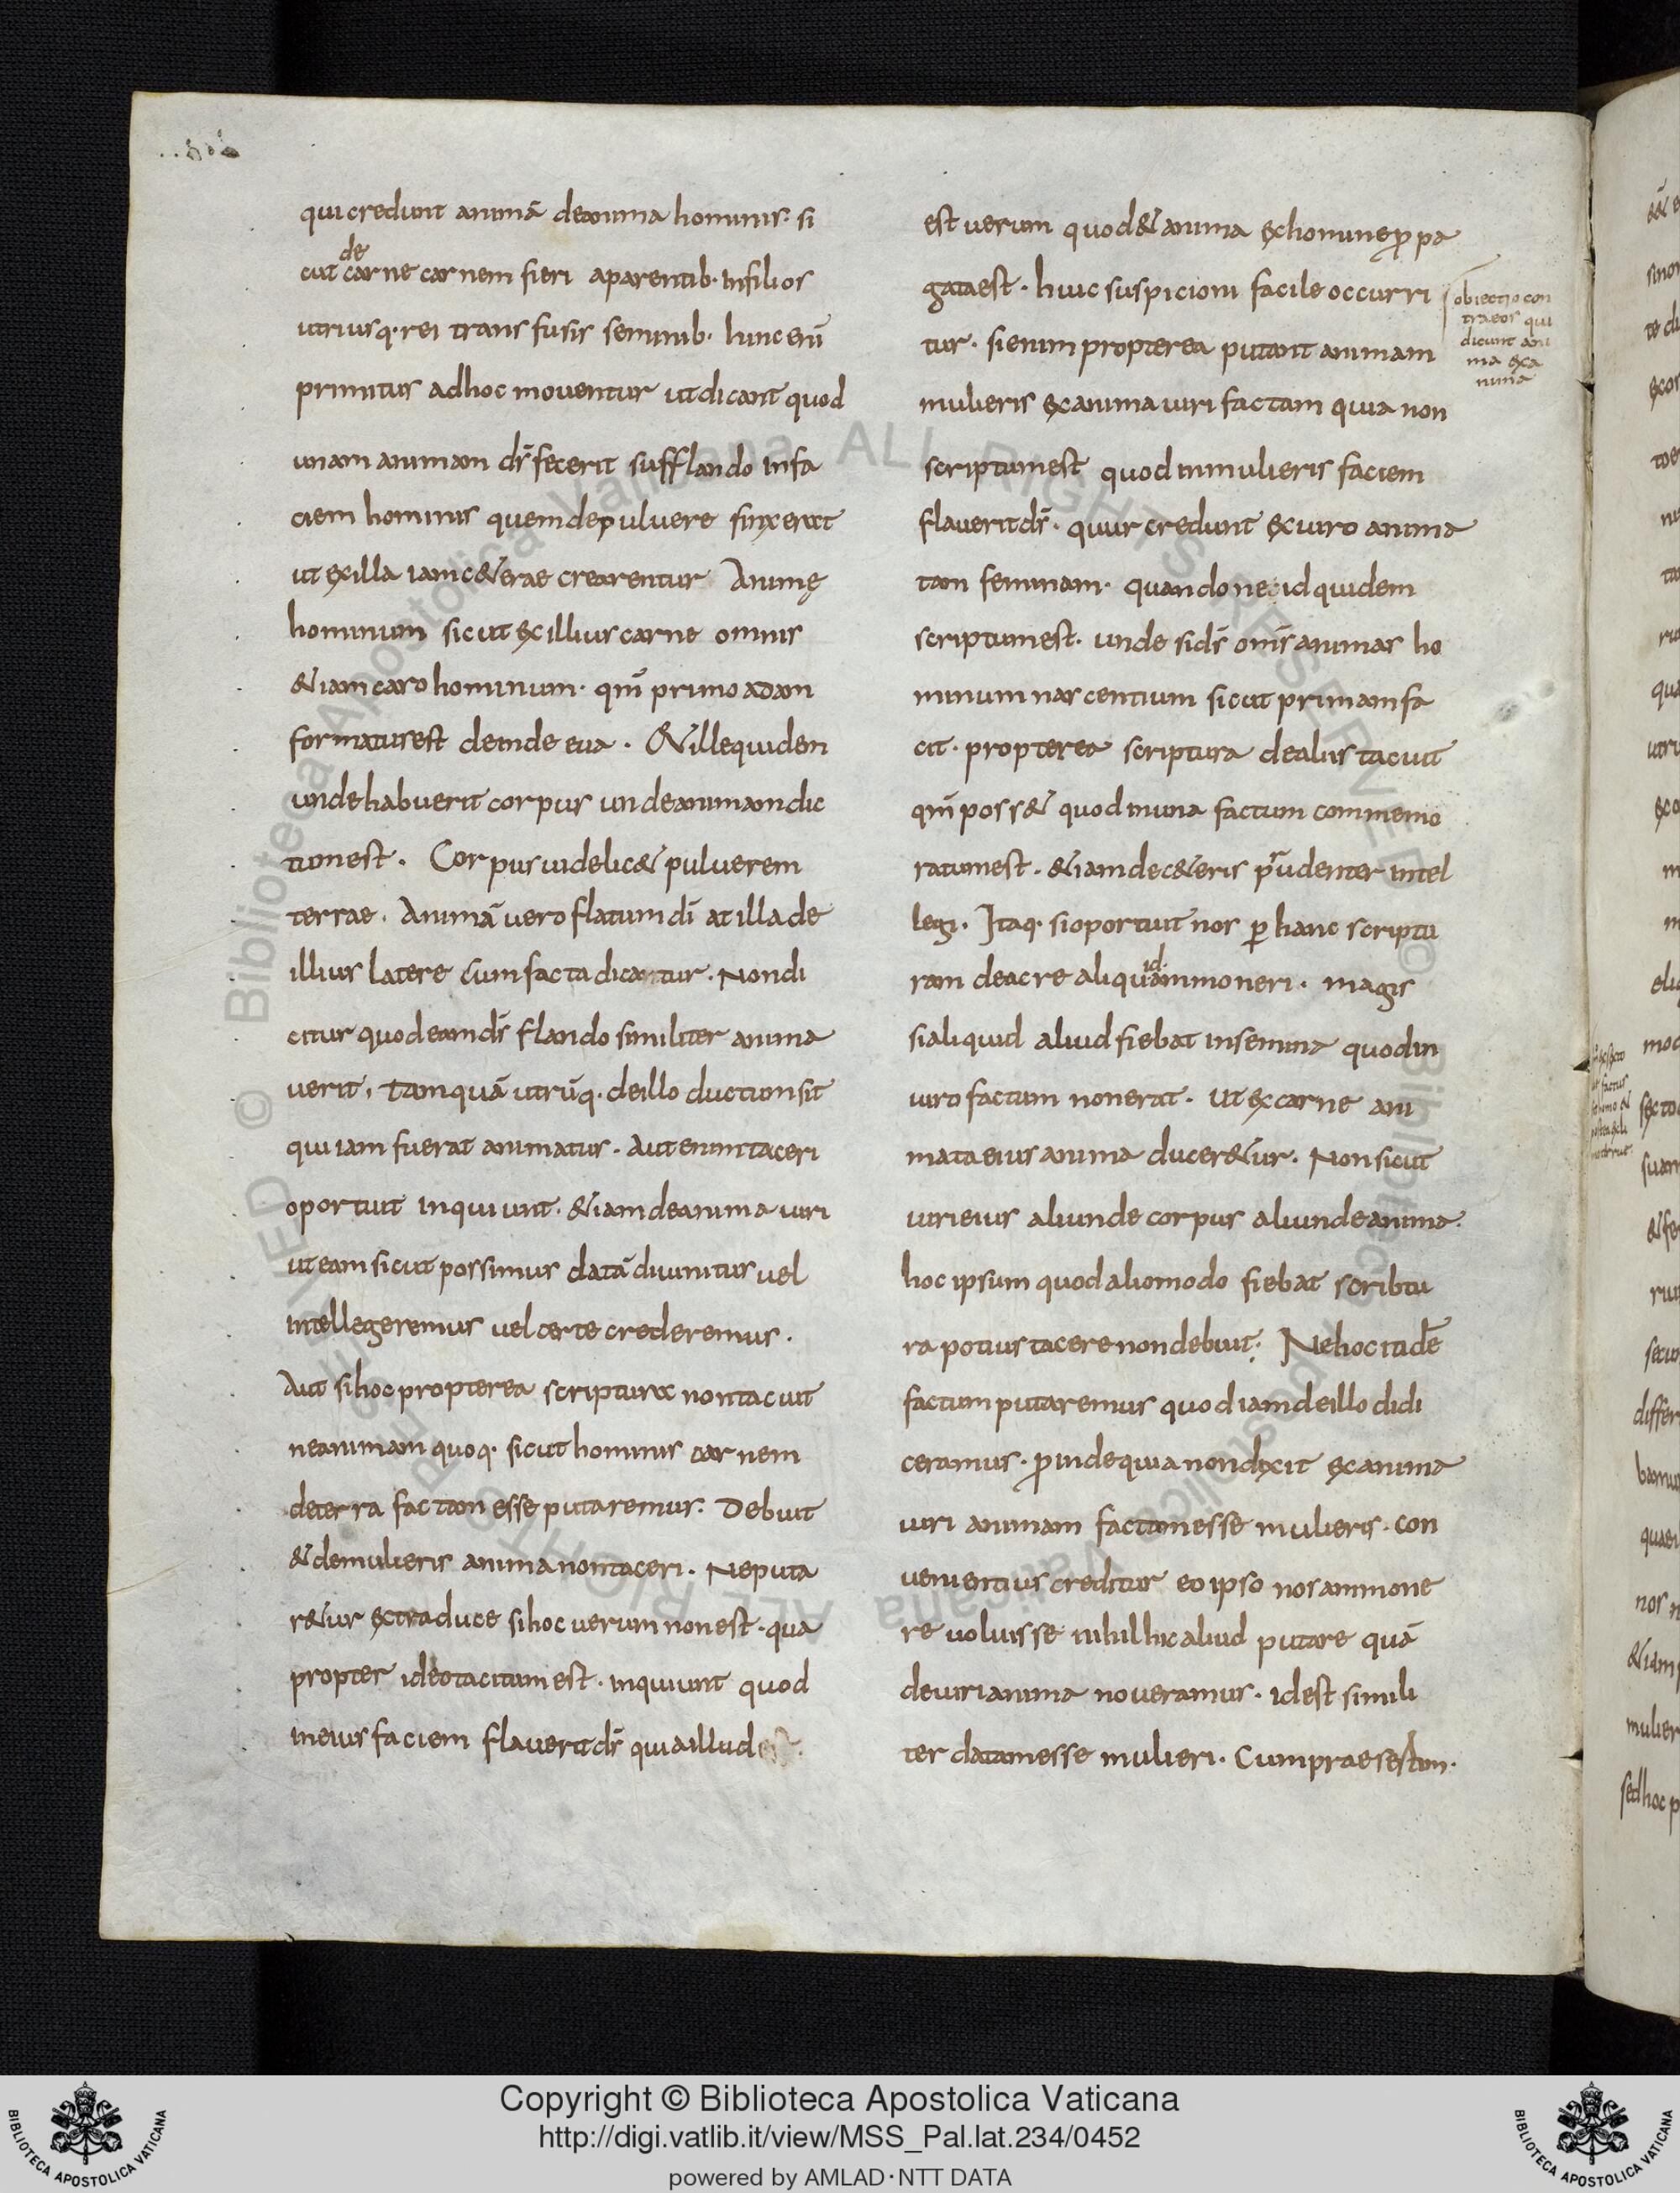 qui credunt animā de anima hominis. si
de
cut carne carnem fieri a parentib· in filios
utriusq· rei transfusis seminib· hinc enī
primitus ad hoc moventur ut dicant quod
unam animam d̄s fecerit sufflando in fa
ciem hominis quem de pulvere finxerat
ut ex illa iam c&erae crearentur Animę
hominum sicut ex illius carne omnis
&iam caro hominum· qm̄ primo adam
formatus est deinde eva · & ille quidem
unde habuerit corpus unde animam dic
tum est · Corpus videlic& pulverem
terrae · Animā vero flatum dī at illa de
illius latere cum facta dicatur · Non di
citur quod eam d̄s flando similiter anima
verit, tamquā utrūq· de illo ductum sit
qui iam fuerat animatus · Aut enim taceri
oportuit inquiunt · &iam de anima viri
ut eam sicut possimus datā divinitus vel
intellegeremus vel certe crederemus ·
Aut si hoc propterea scriptura non tacuit
ne animam quoq· sicut hominis carnem
de terra factam esse putaremus · Debuit
& de mulieris anima non taceri · Ne puta
r&ur ex traduce si hoc verum non est · qua
propter ideo tacitum est · inquiunt quod
in eius faciem flaverit d̄s quia illud
est verum quod & anima ex homine ꝓpa
gata est · huic suspicioni facile occurri
tur · si enim propterea putant animam
mulieris ex anima viri factam quia non
scriptum est quod in mulieris faciem
flaverit d̄s · quur credunt ex viro anima
tam feminam · quando ne id quidem
scriptum est · unde si d̄s om̄s animas ho
minum nascentium sicut primam fa
cit · propterea scriptura de aliis tacuit
qm̄ poss& quod in una factum commemo
ratum est · &iam de c&eris prudenter intel
legi · Itaq· si oportuit nos ꝑ hanc scriptu
id
ram de ac re aliqu ammoneri · magis
si aliquid aliud fiebat in femina quod in
viro factum non erat · ut ex carne ani
mata eius anima ducer&ur · Non sicut
viri eius aliunde corpus aliunde anima·
hoc ipsum quod alio modo fiebat scribtu
ra potius tacere non debuit· Ne hoc itidē
factum putaremus quod iam de illo didi
ceramus · ꝓinde quia non dixit ex anima
viri animam factam esse mulieris · con
venientius creditur eo ipso nos ammone
re voluisse nihil hic aliud putare quā
de viri anima noveramus · id est simili
ter datam esse mulieri · Cum praesertim·
obiectio con
tra eos qui
dicunt ani
ma ex a
nima
Copyright © Biblioteca Apostolica Vaticana
http://digi.vatlib.it/view/MSS_Pal.lat.234/0452
powered by AMLAD·NTT DATA
BIBLIOTECA APOSTOLICA VATICANA
BIBLIOTECA APOSTOLICA VATICANA